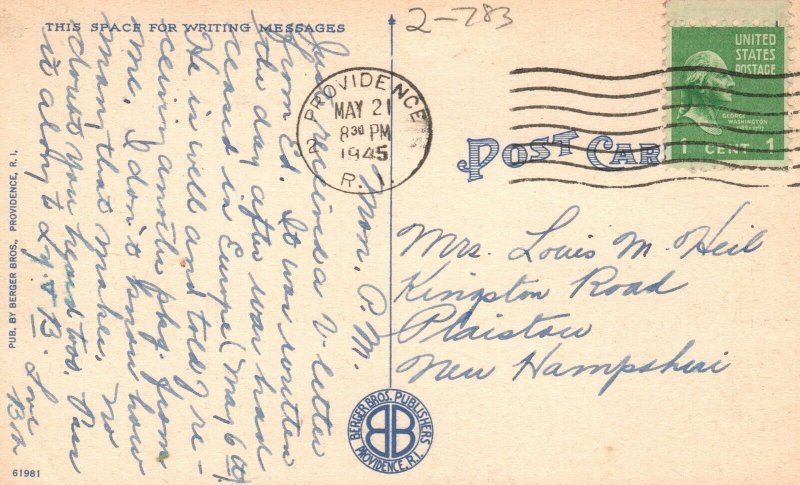 THIS SPACE FOR WRITING MESSAGES
2-783
Mon. P. M.
Just received a V-letter
from Ed. It was written
the day after war had
ceased in Europe (May 6th)
He is well and told of re-
ceiving another pkg. from
me. I don't know how
many that makes. No
doubt you heard too. Pass
it along to Ly. & B. Love
PROVIDENCE
MAY 21
8 30 PM
1945
R. I.
2
UNITED
STATES
POSTAGE
GEORGE
WASHINGTON
1789-1797
1 CENT 1
POST CARD
Mrs. Louis M. Heil
Kingston Road
Plaistow
New Hampshire
PUB. BY BERGER BROS., PROVIDENCE, R. I.
61981
BERGER BROS. PUBLISHERS
BB
PROVIDENCE, R.I.